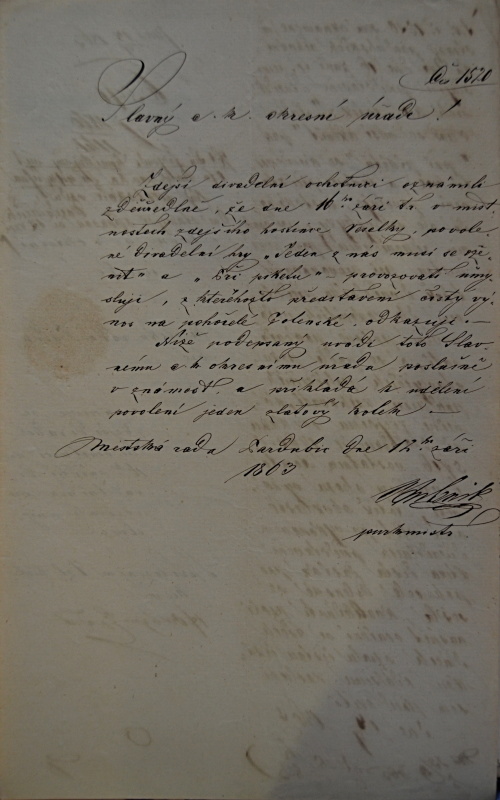 Čís 1520
Slavný c. k. okresní úřade!
Zdejší divadelní ochotníci oznámili
zdeúředlně, že dne 16ho září t. r. v míst
nostech zdejšího hostince Veselky, povole
né divadelní hry „Jeden z nás musí se ože
nit“ a „Při piketu“ provozovati zamý
slují, z kteréhožto představení čistý vý
nos na pohořelé Jolenské odkazují. —
Níže podepsaný uvádí toto Slav
nému c k okresnímu úřadu poslušně
v známost, a přikládá k udělení
povolení jeden zlatový kolek —
Městská rada Pardubic dne 12ho září
1863
purkmistr